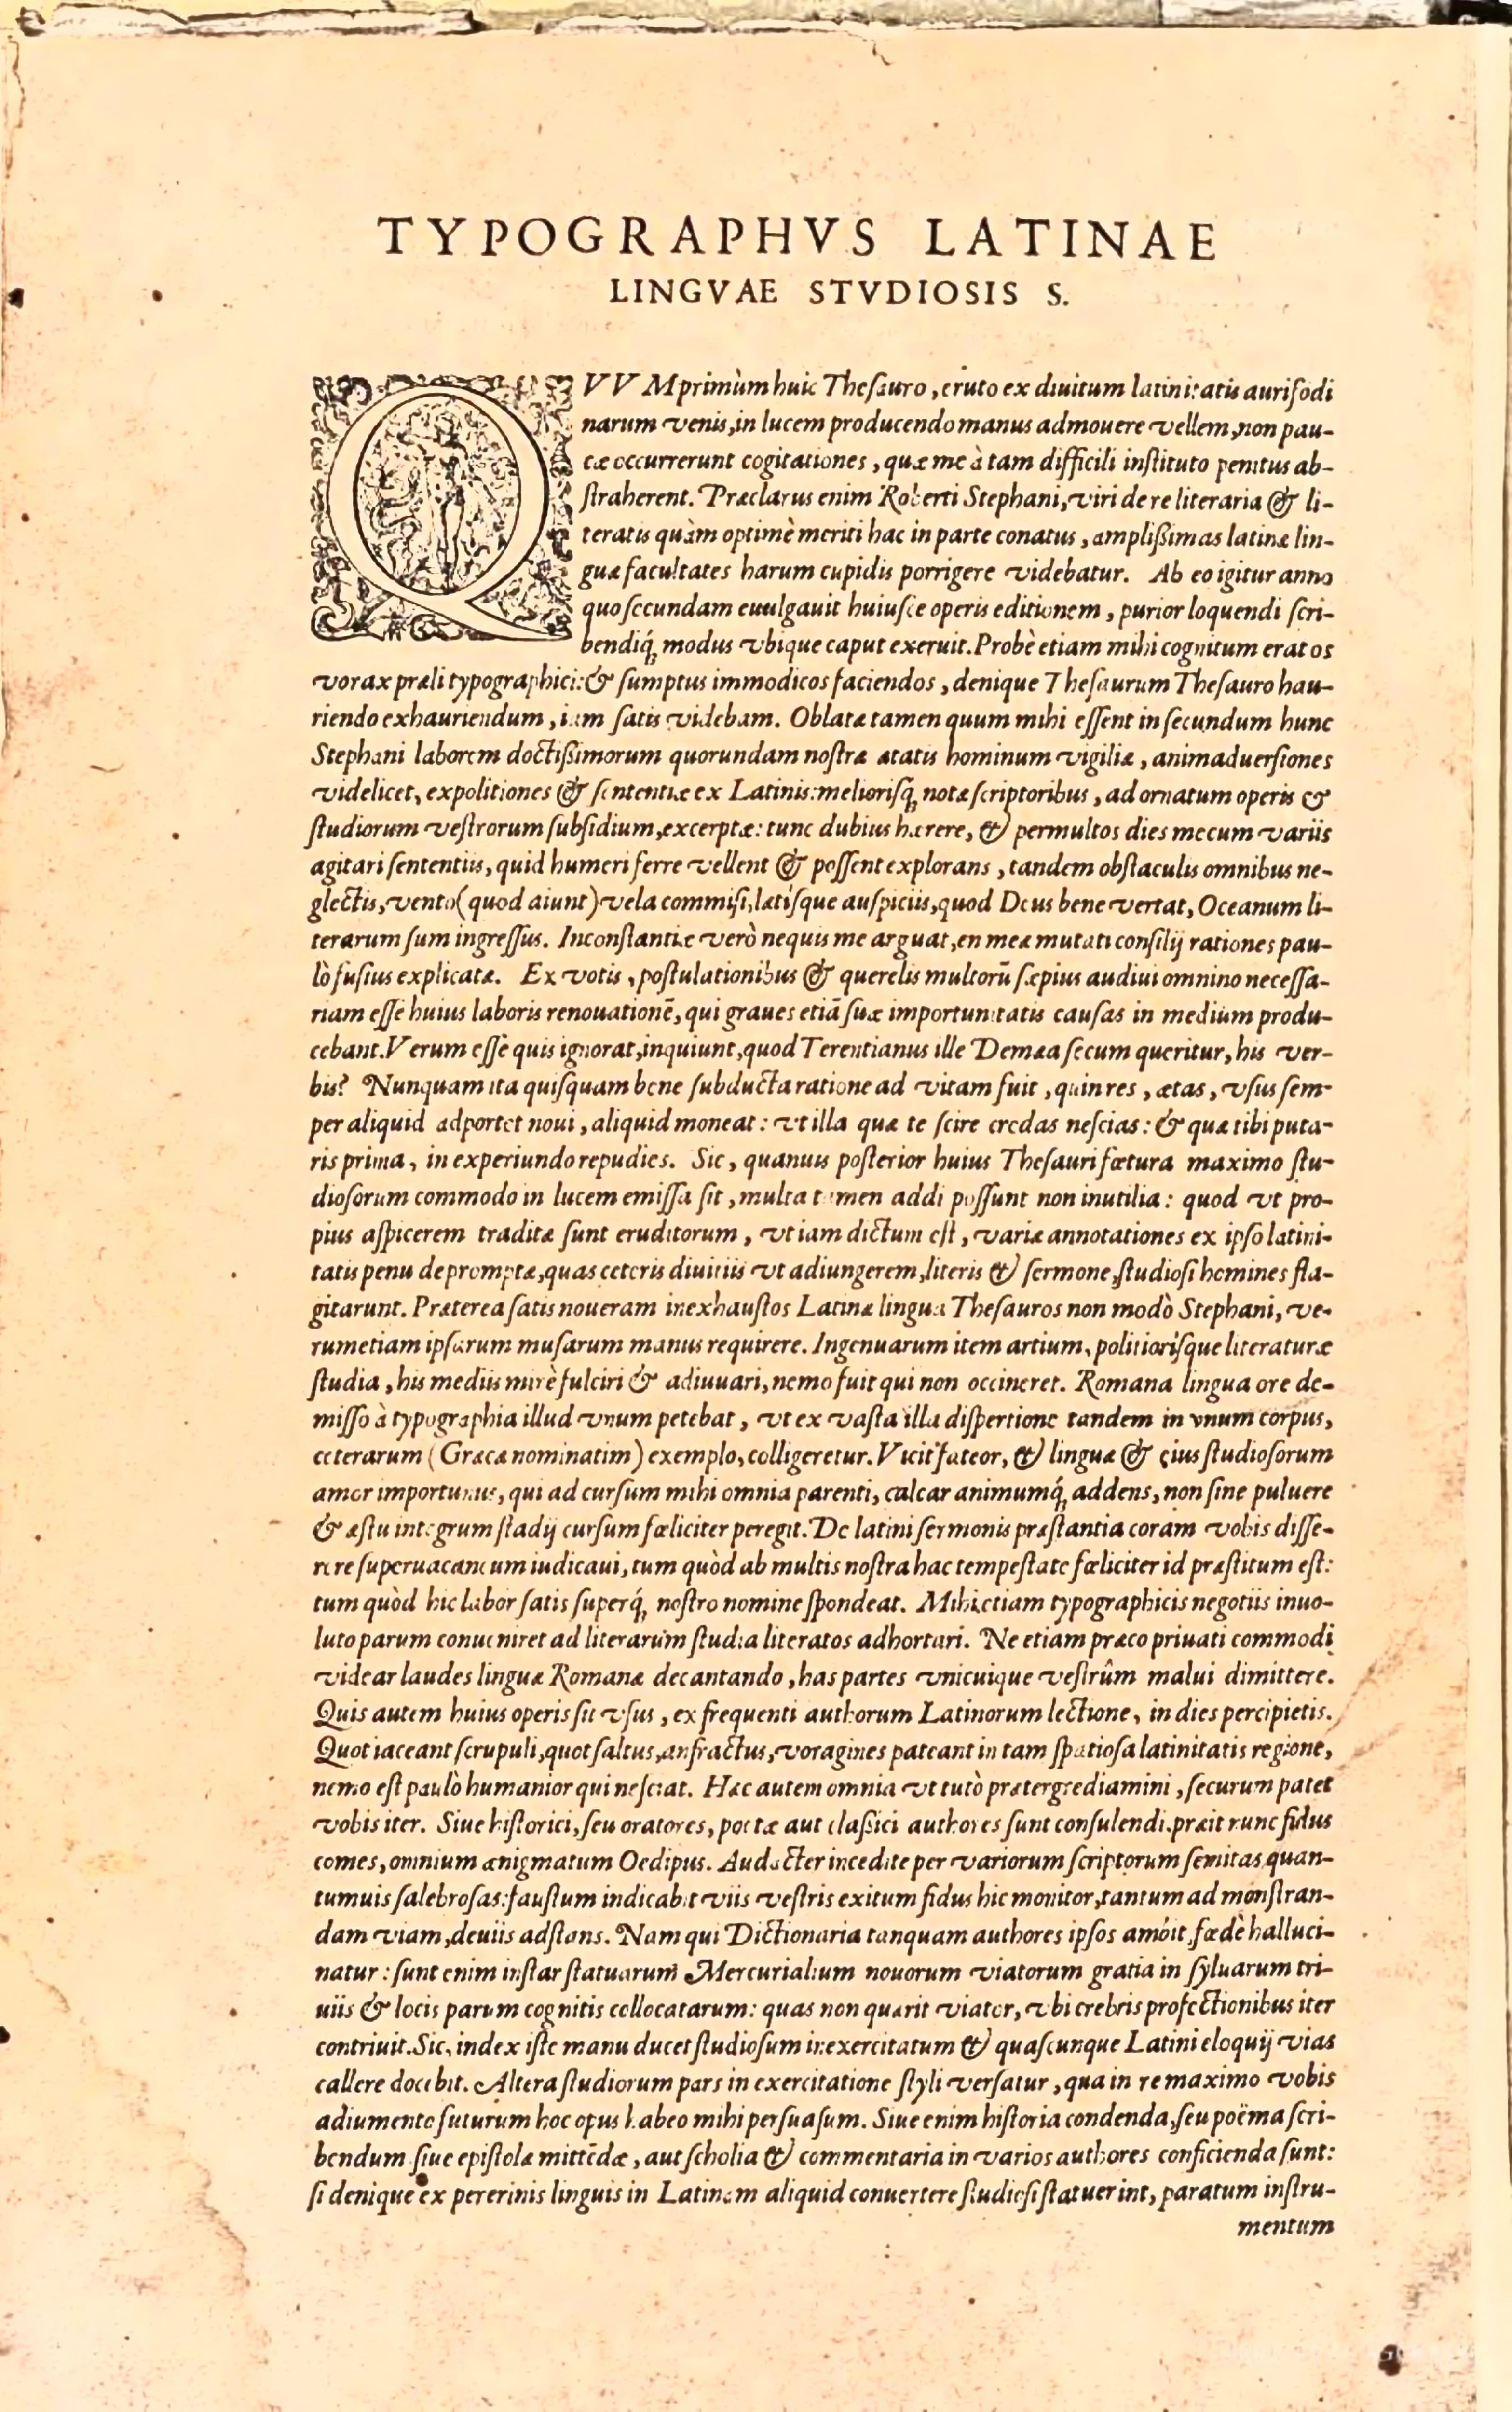 TYPOGRAPHVS LATINAE
LINGVAE STVDIOSIS S.
QVVM primùm huic Thesauro, eruto ex diuitum latinitatis aurifodi
narum venis, in lucem producendo manus admouere vellem, non pau-
cæ occurrerunt cogitationes, quæ me à tam difficili instituto penitus ab-
straherent. Præclarus enim Roberti Stephani, viri de re literaria & li-
teratis quàm optimè meriti hac in parte conatus, amplissimas latinæ lin-
guæ facultates harum cupidis porrigere videbatur. Ab eo igitur anno
quo secundam euulgauit huiusce operis editionem, purior loquendi scri-
bendiq́; modus vbique caput exeruit. Probè etiam mihi cognitum erat os
vorax præli typographici: & sumptus immodicos faciendos, denique Thesaurum Thesauro hau-
riendo exhauriendum, iam satis videbam. Oblatæ tamen quum mihi essent in secundum hunc
Stephani laborem doctissimorum quorundam nostræ ætatis hominum vigiliæ, animaduersiones
videlicet, expolitiones & sententiæ ex Latinis: meliorisq́; notæ scriptoribus, ad ornatum operis &
studiorum vestrorum subsidium, excerptæ: tunc dubius hærere, & permultos dies mecum variis
agitari sententiis, quid humeri ferre vellent & possent explorans, tandem obstaculis omnibus ne-
glectis, vento (quod aiunt) vela commisi, lætisque auspiciis, quod Deus bene vertat, Oceanum li-
terarum sum ingressus. Inconstantiæ verò nequis me arguat, en meæ mutati consilij rationes pau-
lò fusius explicatæ. Ex votis, postulationibus & querelis multorū sæpius audiui omnino necessa-
riam esse huius laboris renouationē, qui graues etiā suæ importunitatis causas in medium produ-
cebant. Verum esse quis ignorat, inquiunt, quod Terentianus ille Demæa secum queritur, his ver-
bis? Nunquam ita quisquam bene subducta ratione ad vitam fuit, quin res, ætas, vsus sem-
per aliquid adportet noui, aliquid moneat: vt illa quæ te scire credas nescias: & quæ tibi puta-
ris prima, in experiundo repudies. Sic, quanuis posterior huius Thesauri fœtura maximo stu-
diosorum commodo in lucem emissa sit, multa tamen addi possunt non inutilia: quod vt pro-
pius aspicerem traditæ sunt eruditorum, vt iam dictum est, variæ annotationes ex ipso latini-
tatis penu depromptæ, quas ceteris diuitiis vt adiungerem, literis & sermone, studiosi homines fla-
gitarunt. Præterea satis noueram inexhaustos Latinæ linguæ Thesauros non modò Stephani, ve-
rumetiam ipsarum musarum manus requirere. Ingenuarum item artium, politiorisque literaturæ
studia, his mediis mirè fulciri & adiuuari, nemo fuit qui non occineret. Romana lingua ore de-
misso à typographia illud vnum petebat, vt ex vasta illa dispertione tandem in vnum corpus,
ceterarum (Græcæ nominatim) exemplo, colligeretur. Vicit fateor, & linguæ & eius studiosorum
amor importunus, qui ad cursum mihi omnia parenti, calcar animumq́; addens, non sine puluere
& æstu integrum stadij cursum fœliciter peregit. De latini sermonis præstantia coram vobis disse-
rere superuacaneum iudicaui, tum quòd ab multis nostra hac tempestate fœliciter id præstitum est:
tum quòd hic labor satis superq́; nostro nomine spondeat. Mihi etiam typographicis negotiis inuo-
luto parum conueniret ad literarum studia literatos adhortari. Ne etiam præco priuati commodi
videar laudes linguæ Romanæ decantando, has partes vnicuique vestrûm malui dimittere.
Quis autem huius operis sit vsus, ex frequenti authorum Latinorum lectione, in dies percipietis.
Quot iaceant scrupuli, quot saltus, anfractus, voragines pateant in tam spatiosa latinitatis regione,
nemo est paulò humanior qui nesciat. Hæc autem omnia vt tutò prætergrediamini, securum patet
vobis iter. Siue historici, seu oratores, poetæ aut classici authores sunt consulendi, præit nunc fidus
comes, omnium ænigmatum Oedipus. Audacter incedite per variorum scriptorum semitas, quan-
tumuis salebrosas: faustum indicabit viis vestris exitum fidus hic monitor, tantum ad monstran-
dam viam, deuiis adstans. Nam qui Dictionaria tanquam authores ipsos ambit, fœdè halluci-
natur: sunt enim instar statuarum Mercurialium nouorum viatorum gratia in syluarum tri-
uiis & locis parum cognitis collocatarum: quas non quærit viator, vbi crebris profectionibus iter
contriuit. Sic, index iste manu ducet studiosum inexercitatum & quascunque Latini eloquij vias
callere docebit. Altera studiorum pars in exercitatione styli versatur, qua in re maximo vobis
adiumento futurum hoc opus habeo mihi persuasum. Siue enim historia condenda, seu poëma scri-
bendum siue epistolæ mittēdæ, aut scholia & commentaria in varios authores conficienda sunt:
si denique ex pererinis linguis in Latinam aliquid conuertere studiosi statuerint, paratum instru-
mentum